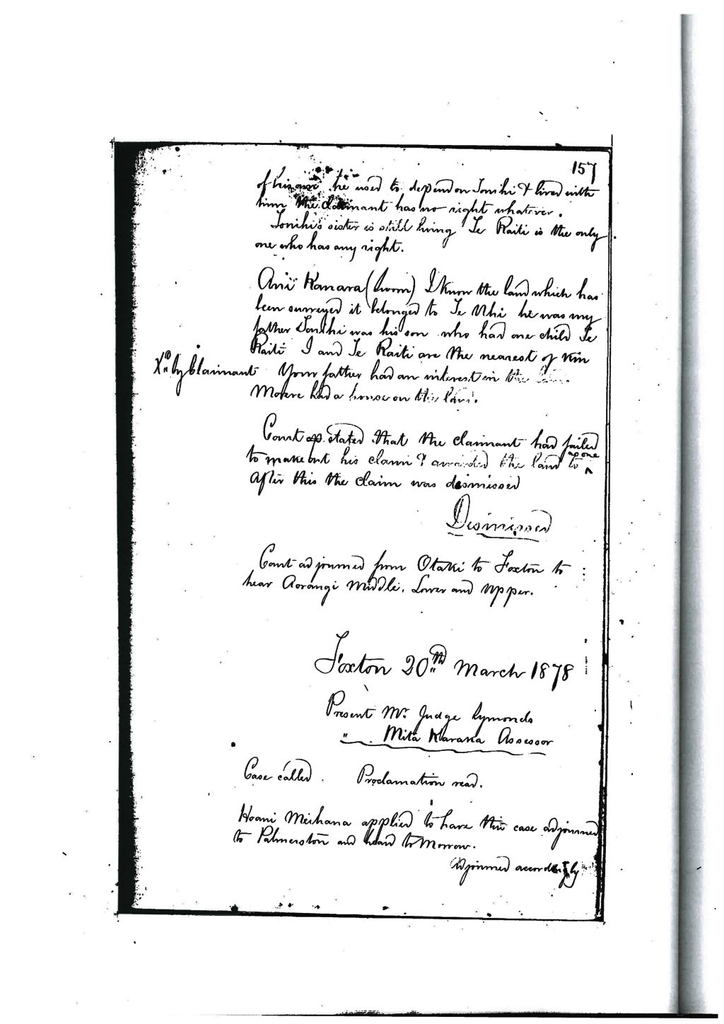 157
he used to depend on Tonihi & lived with
him The Claimant has no right whatever.
Tonihi's sister is still living Te Raiti is the only
one who has any right.
Ani Kanara (sworn) I know the land which has
been surveyed it belonged to Te Uhi he was my
father Tonihi was his son who had one child Te
Raiti I and Te Raiti are the nearest of kin
Xd. by Claimant Your father had an interest in the
had a house on the land.
Court stated that the claimant had failed
to make out his claim & awarded the land to no one
After this the claim was dismissed
Dismissed
Court adjourned from Otaki to Foxton to
hear Aorangi Middle, Lower and Upper.
Foxton 20th March 1878
Present Mr. Judge Symonds
" Mita Karaka Assessor
Case called. Proclamation read.
Hoani Meihana applied to have this case adjourned
to Palmerston and heard to Morrow.
Adjourned accordingly